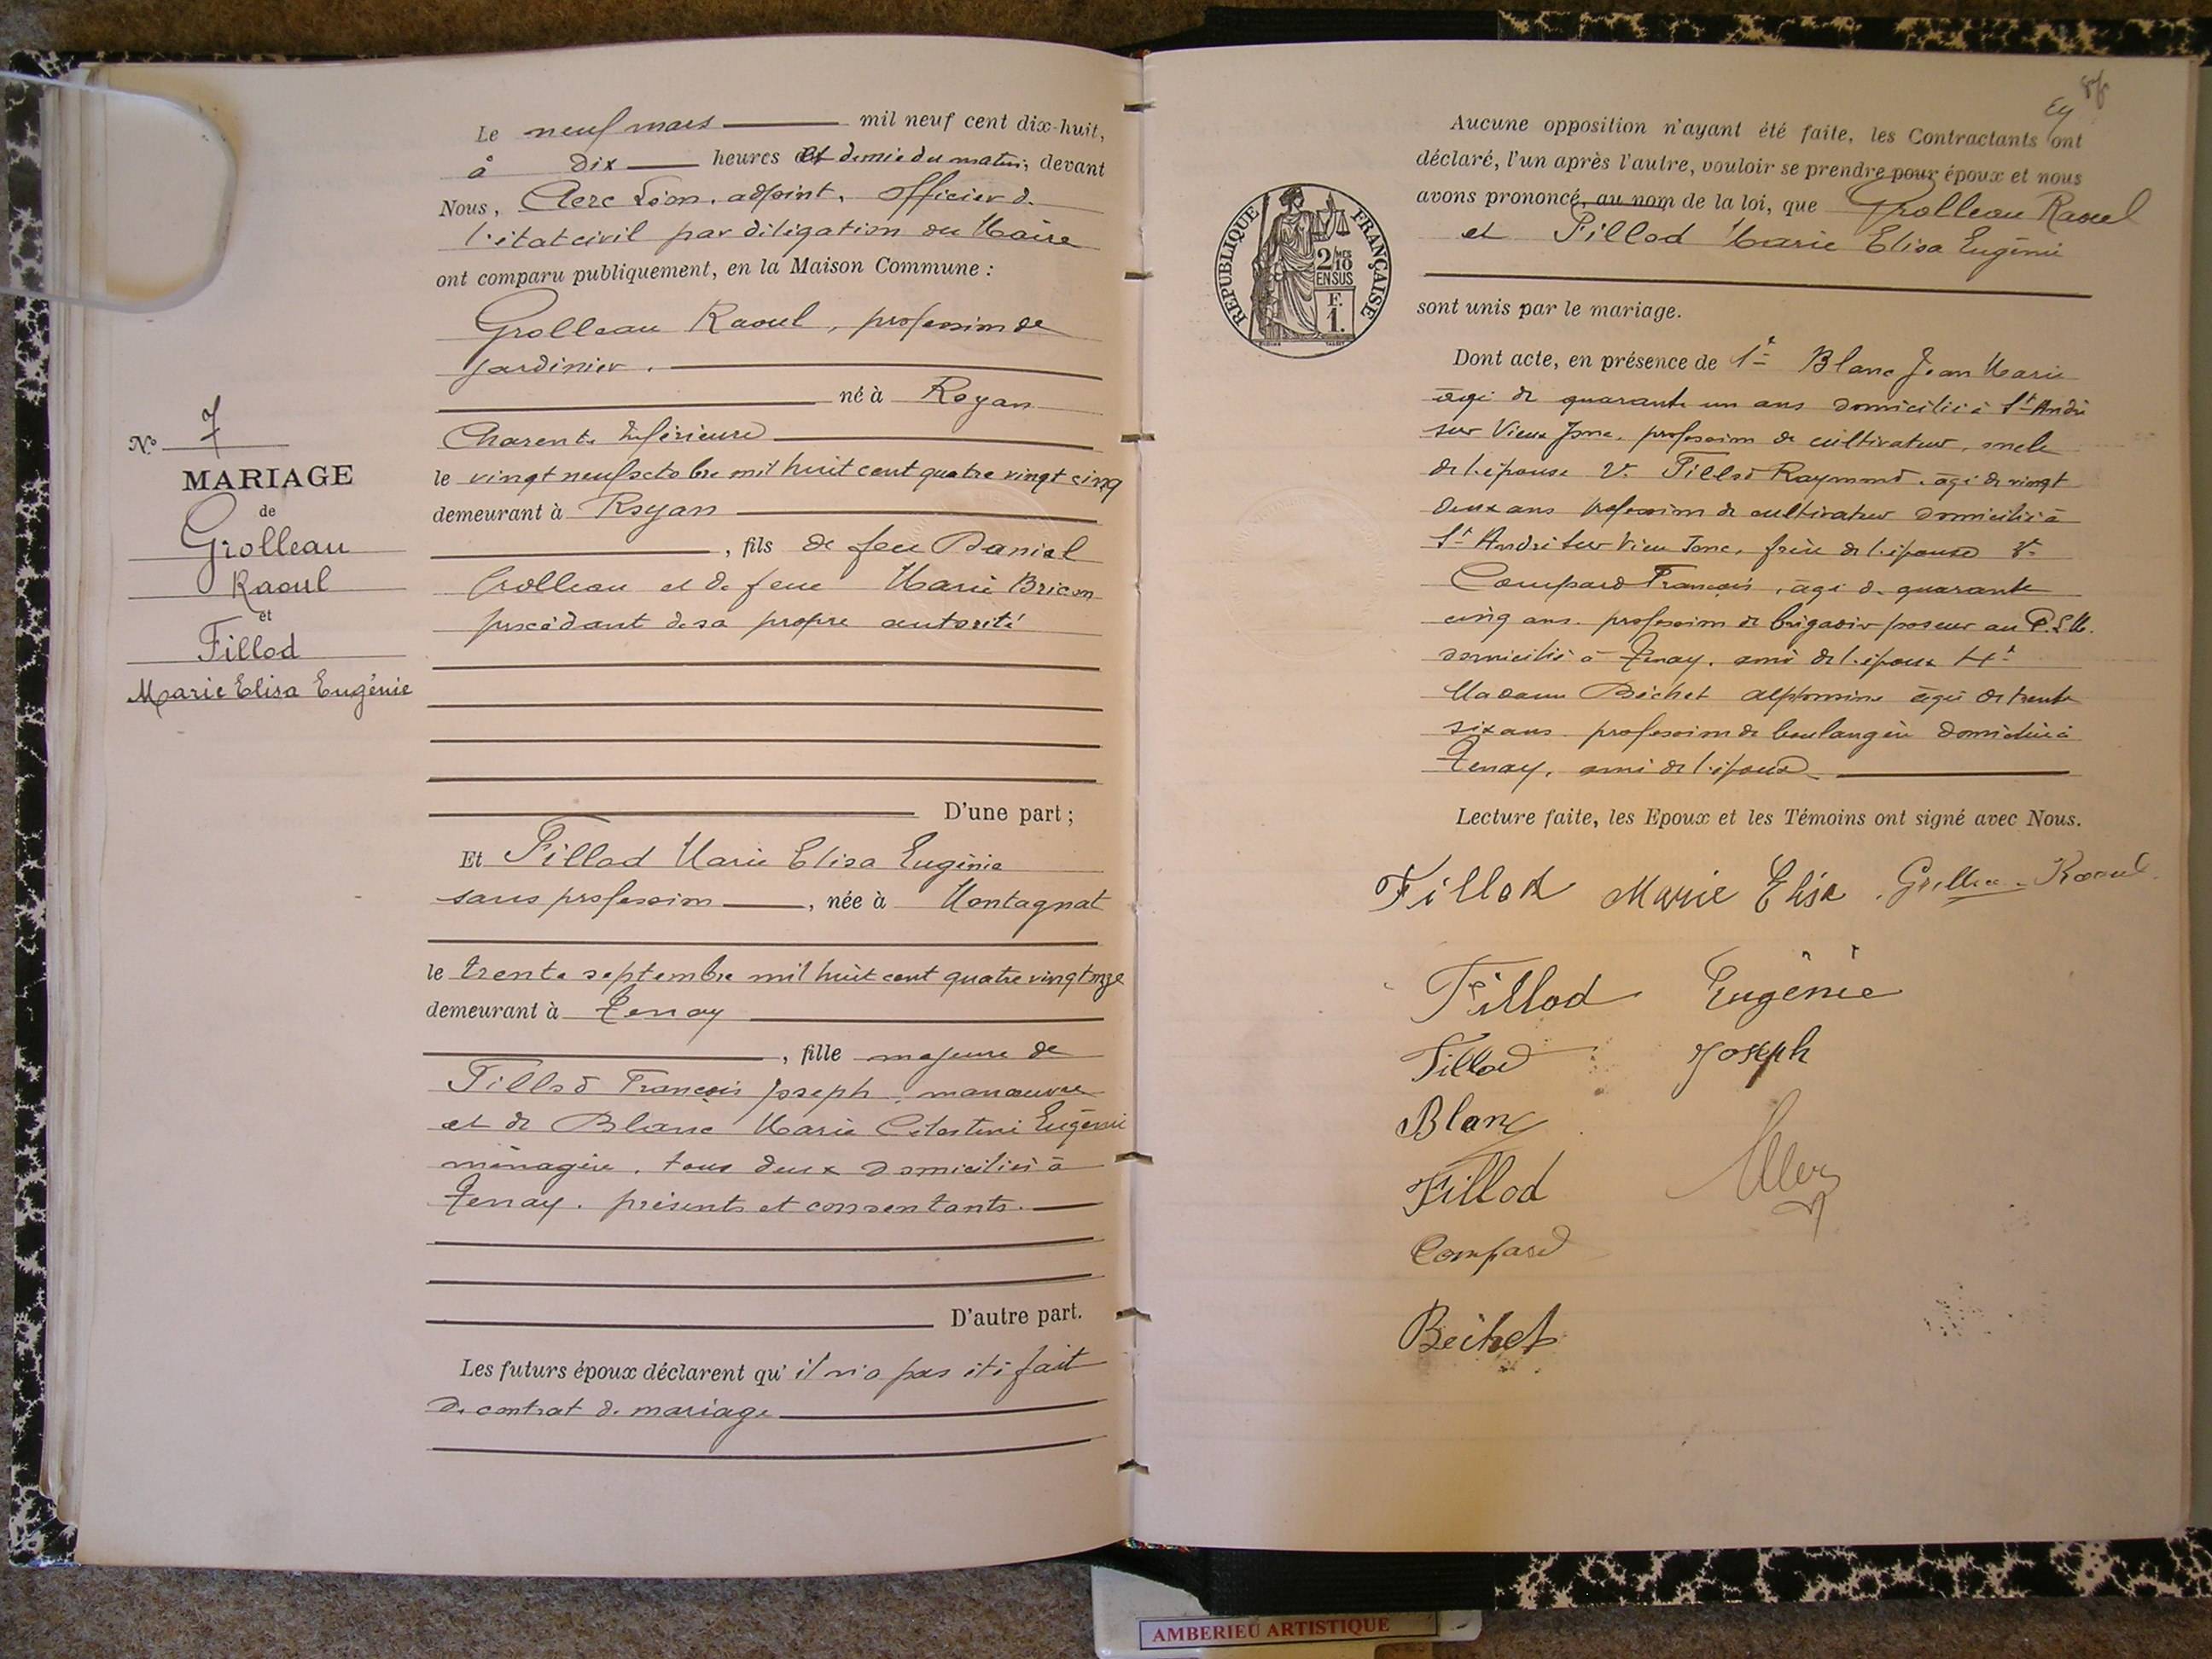 Le neuf mars mil neuf cent dix-huit,
à dix heures et demie du matin, devant
Nous, Clerc Léon, adjoint, officier de
l'état civil par délégation du Maire
ont comparu publiquement, en la Maison Commune :
Grolleau Raoul, profession de
jardinier.
né à Royan
Charente Inférieure
le vingt neuf octobre mil huit cent quatre vingt cinq
demeurant à Royan
, fils de feu Daniel
Grolleau et de feue Marie Bricon
procédant de sa propre autorité
D'une part ;
Nº 7
MARIAGE
de
Grolleau
Raoul
et
Fillod
Marie Elisa Eugénie
Et Fillod Marie Elisa Eugénie
sans profession, née à Montagnat
le trente septembre mil huit cent quatre vingt onze
demeurant à Tenay
, fille majeure de
Fillod François Joseph, manœuvre
et de Blanc Marie Célestine Eugénie
ménagère, tous deux domiciliés à
Tenay. présents et consentants.
D'autre part.
Les futurs époux déclarent qu'il n'a pas été fait
de contrat de mariage
Aucune opposition n'ayant été faite, les Contractants ont
déclaré, l'un après l'autre, vouloir se prendre pour époux et nous
avons prononcé, au nom de la loi, que Grolleau Raoul
et Fillod Marie Elisa Eugénie
sont unis par le mariage.
REPUBLIQUE FRANÇAISE
2/10
EN SUS
F.
1.
Dont acte, en présence de 1º Blanc Jean Marie
âgé de quarante un ans domicilié à St André
sur Vieux Jonc, profession de cultivateur, oncle
de l'épouse 2º Fillod Raymond, âgé de vingt
deux ans profession de cultivateur domicilié à
St André sur Vieu Jonc, frère de l'épouse 3º
Compard François, âgé de quarante
cinq ans. profession de brigadier poseur au P.L.M.
domicilié à Tenay, ami de l'époux 4º
Madame Béchet Alphonsine âgée de trente
six ans profession de boulangère domiciliée à
Tenay, amie de l'épouse
Lecture faite, les Epoux et les Témoins ont signé avec Nous.
Fillod Marie Elisa Grolleau Raoul
Fillod Eugénie
Fillod Joseph
Blanc
Fillod
Compard
Béchet
AMBERIEU ARTISTIQUE